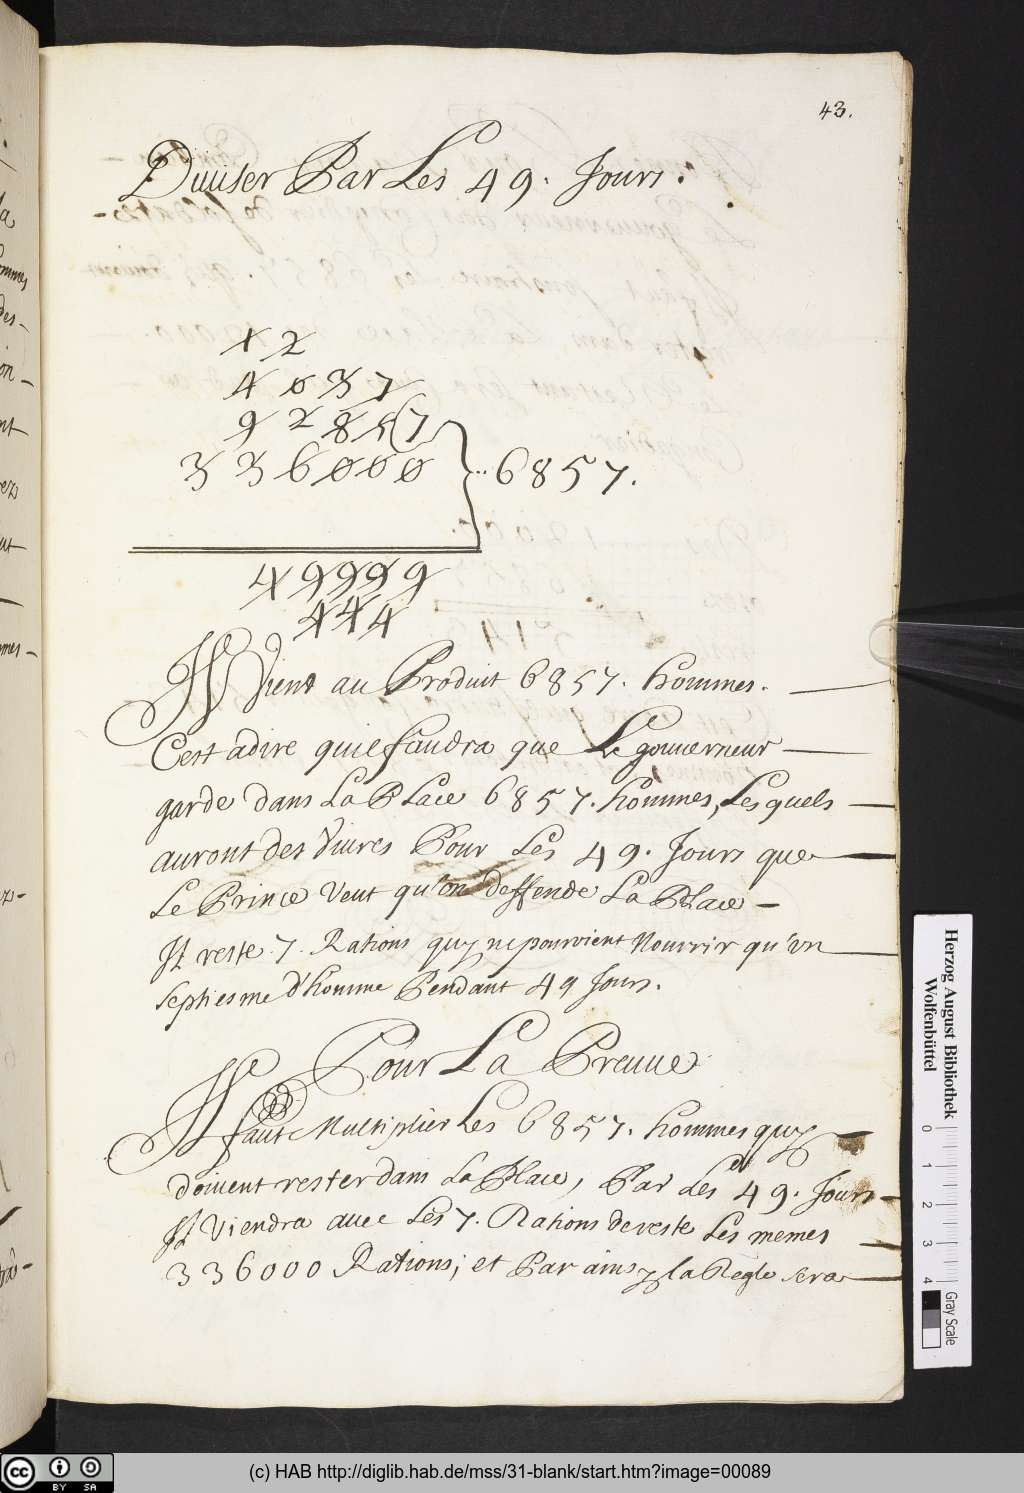 43.
Diuiser Par Les 49. Jours.
1 2
4 0 3 7
9 2 8 5 (7
3 3 6 0 0 0 .. 6 8 5 7.
4 9 9 9 9
4 4 4
Il Vient au Produit 6857. hommes.
Cest adire quil faudra que Le gouuerneur
garde dans La PLace 6857. hommes, Lesquels
auront des Viures Pour Les 49. Jours que
Le Prince Veut qu'on deffende La Place
Il reste 7. Rations quy ne pouroient Nourrir qu'un
septiesme d'homme Pendant 49 Jours.
Pour La Preuue
Il faut Multiplier Les 6857. hommes quy
doiuent rester dans La Place, Par Les 49. Jours
Il Viendra auec Les 7. Rations de reste Les memes
336000 Rations; et Par ainsy la Regle sera
Herzog August Bibliothek
Wolfenbüttel
0 1 2 3 4
Gray Scale
cc BY SA
(c) HAB http://diglib.hab.de/mss/31-blank/start.htm?image=00089